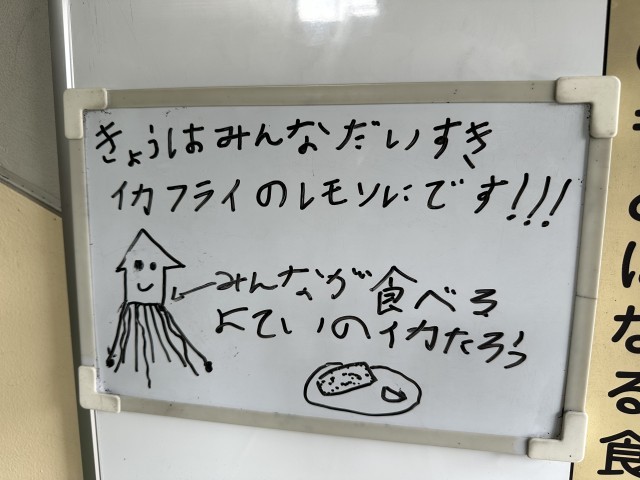 きょうはみんなだいすき
イカフライのレモンにです!!!
みんなが食べる
よていのイカたろう
になる食